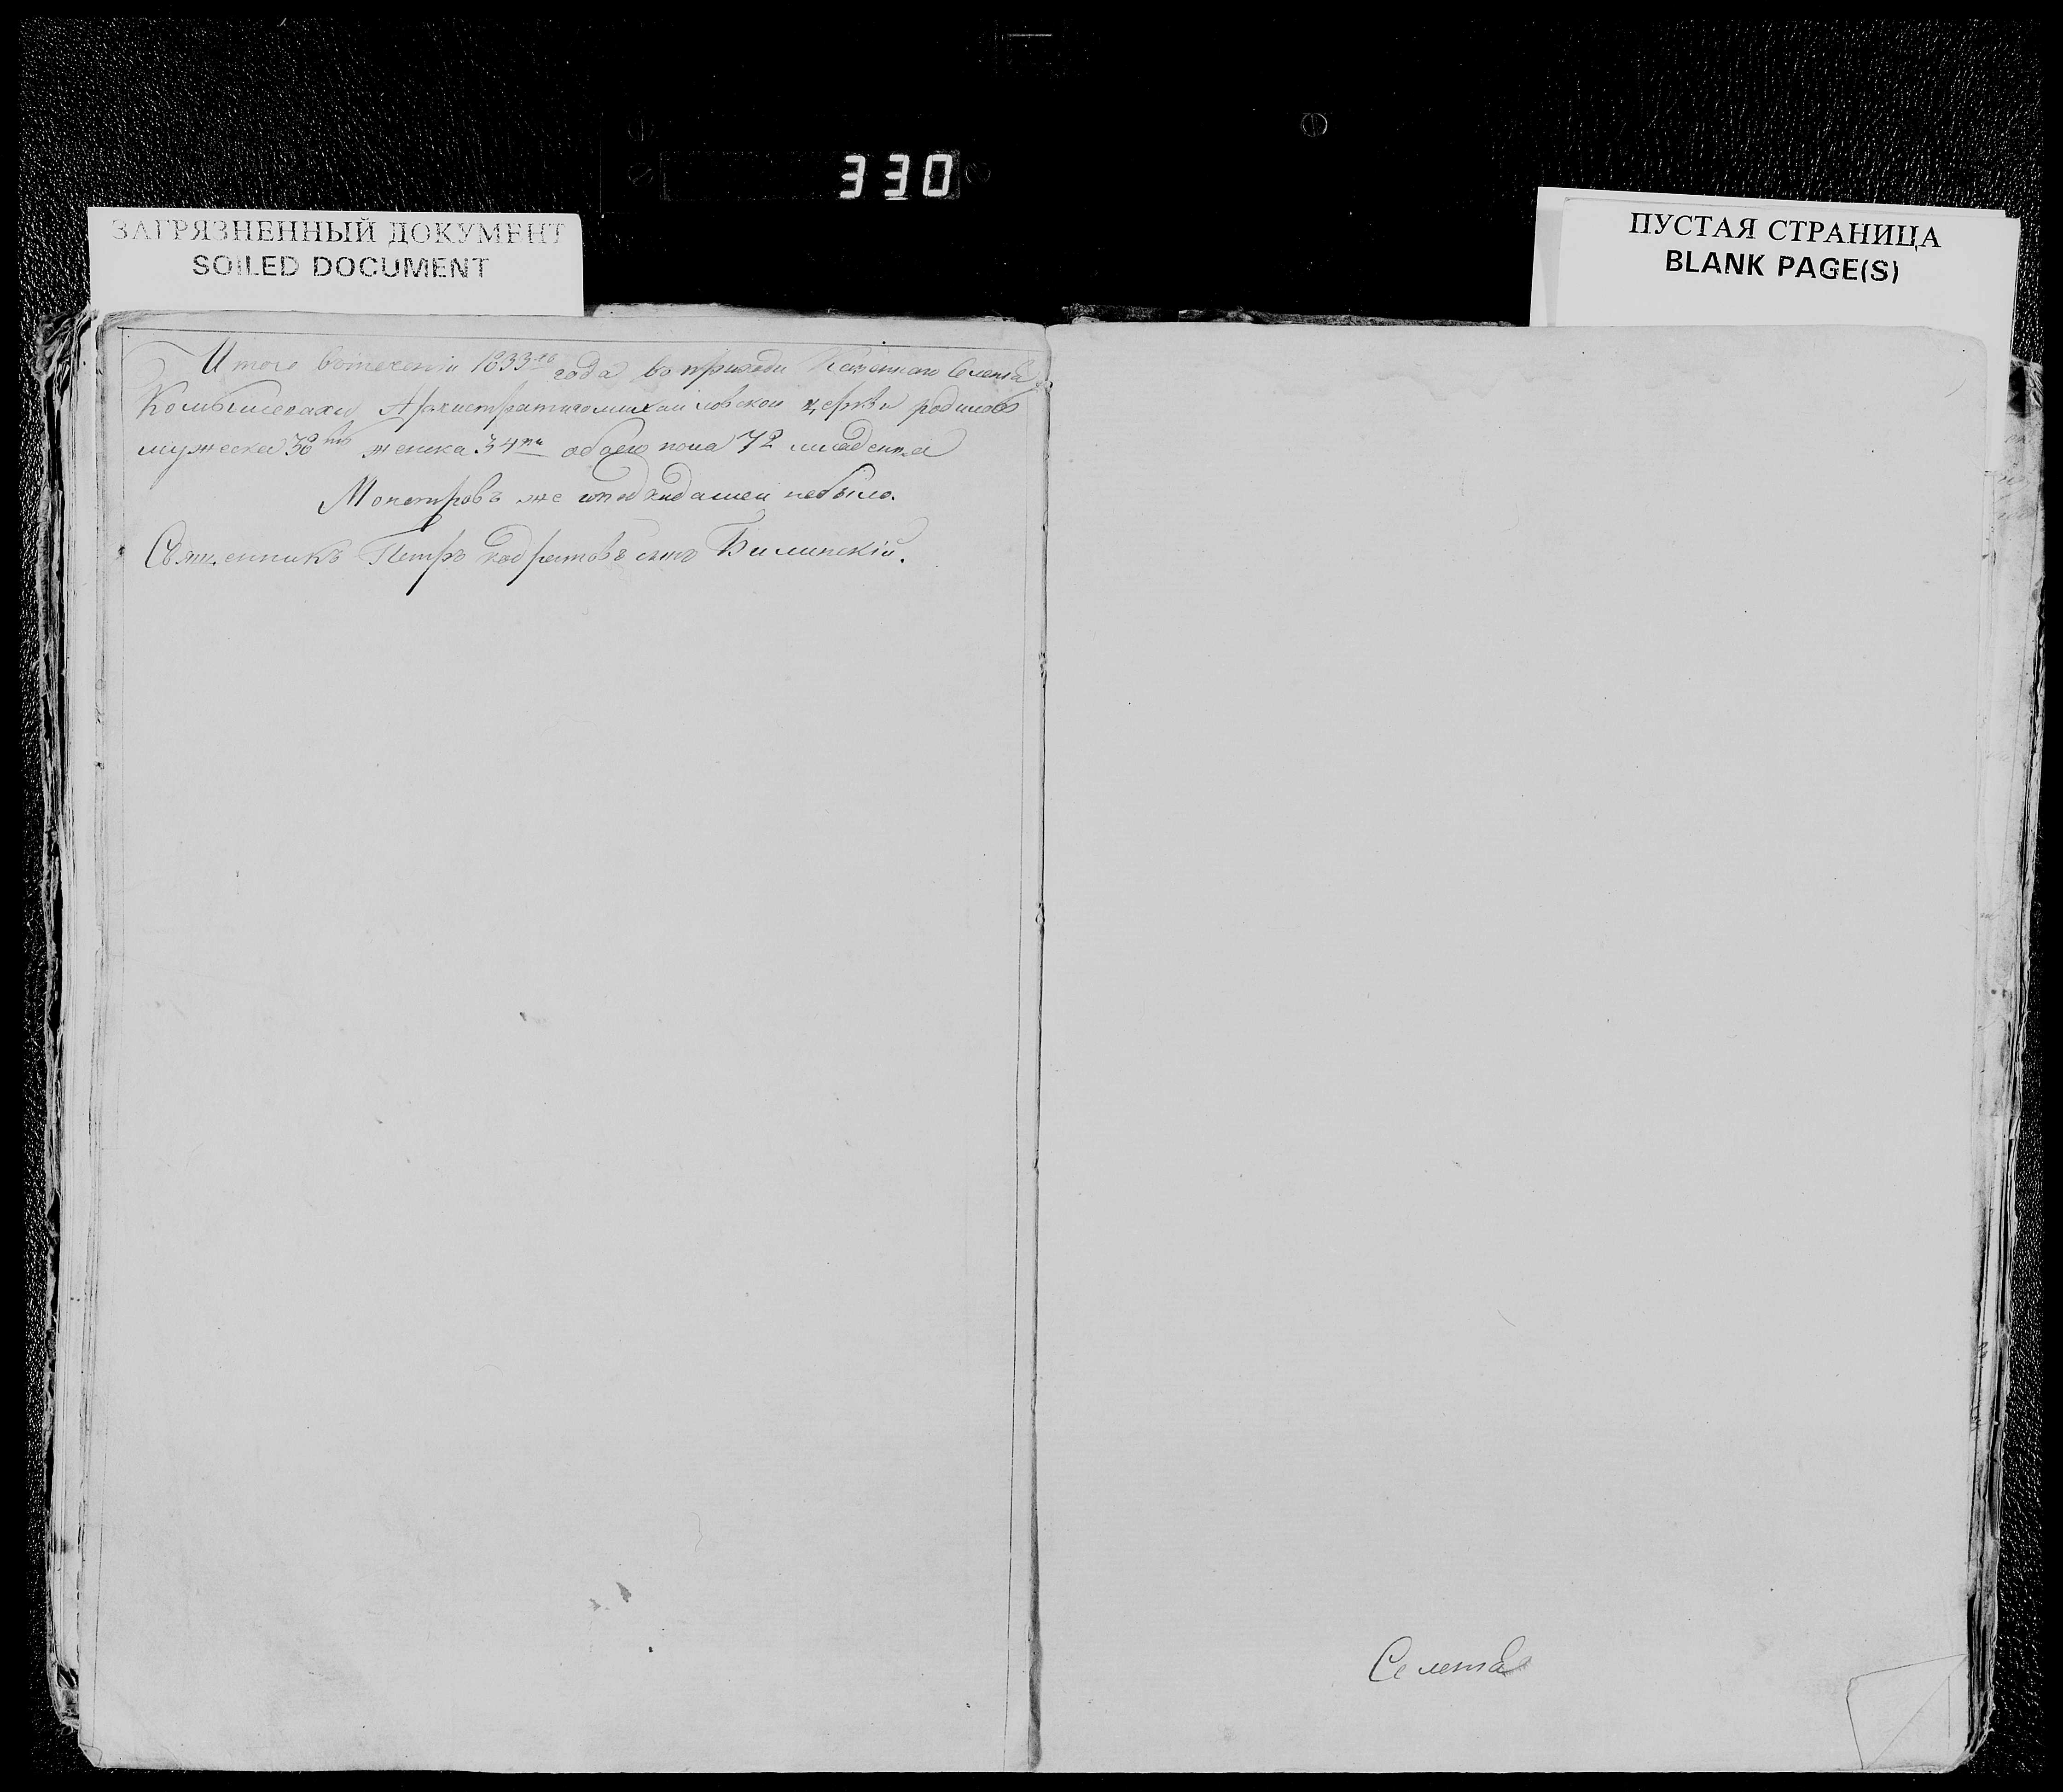 330
ЗАГРЯЗНЕННЫЙ ДОКУМЕНТ
SOILED DOCUMENT
ПУСТАЯ СТРАНИЦА
BLANK PAGE(S)
Итого втечении 1833-го года во приходи Казенного Селенія
Архистратигомихаиловской церкви родилось
мужеска 38 женска 34 обоего пола 72 младенца
Монстровъ же иподкидышей небыло.
Священникъ Петръ сынъ Билинскій.
Селенія